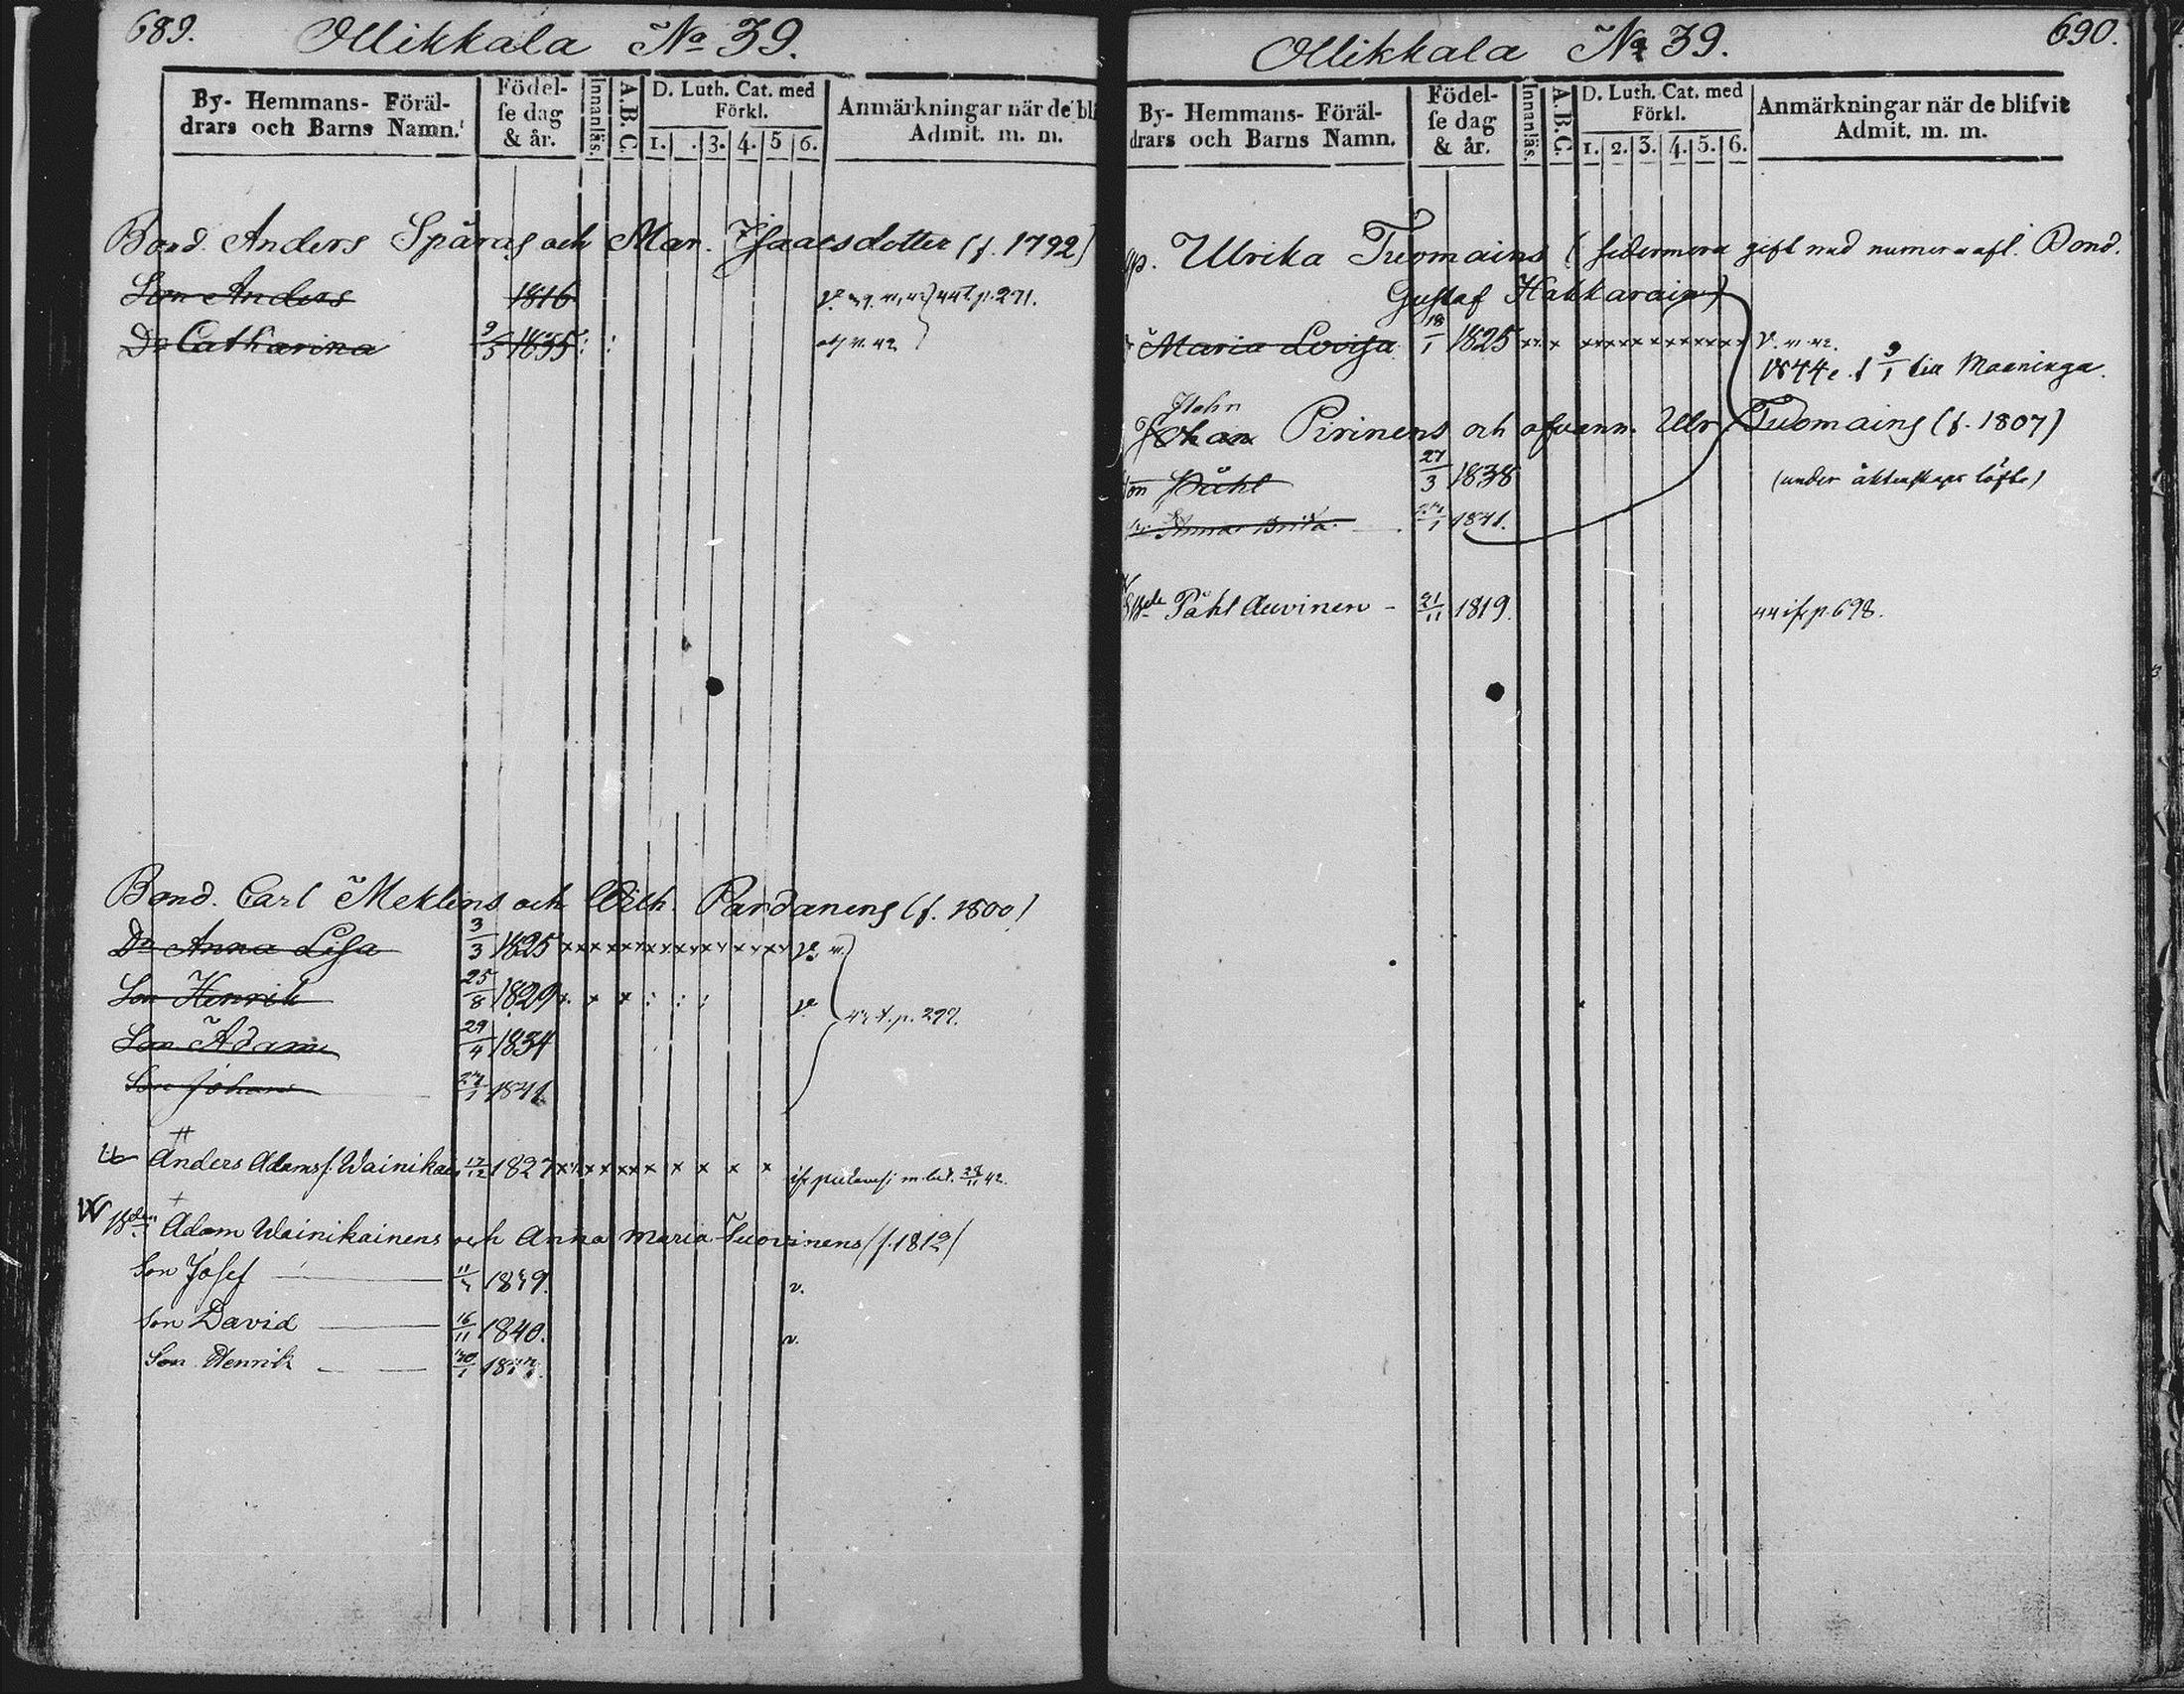 689.
Ollikkala No 39.
By- Hemmans- Föräl-
drars och Barns Namn.
Födel-
se dag
& år.
Innanläs.
A.B.C.
D. Luth. Cat. med
Förkl.
1. . 3. 4. 5 6.
Anmärkningar när de bli
Admit. m. m.
Bond. Anders Spåra&s och Mar. Isaacsdotter (f. 1792)
Son Anders 1816
Dr Catharina 9/5 1835 : :
Bond. Carl Meklins och Cath. Pardanens (f. 1800)
Dr Anna Lisa 3/3 1825 x x x x x x x x x x x x
Son Henrik 25/8 1829 x. x x : : :
Son Adam 29/4 1834
Son Johan 1841
Anders Adamss. Wainikain 17/12 1827 x x x x x x x x x x
Adam Wainikainens och Anna Maria Tuovinens (f. 1812)
Son Josef 1839. v.
Son David 16/11 1840. v.
Son Henrik 30/1
690.
Ollikkala No 39.
By- Hemmans- Föräl-
drars och Barns Namn.
Födel-
se dag
& år.
Innanläs.
A.B.C.
D. Luth. Cat. med
Förkl.
1. 2. 3. 4. 5. 6.
Anmärkningar när de blifvit
Admit. m. m.
Ulrika Tuomains (sedermera gift med numera afl. Bond.
Gustaf Hakkarain)
Maria Lovisa 18/1 1825 x x x x x x x x x x x x x v. 41. 42.
1844 e. f 9/1 till Maaninga.
Johan Pirinens och ofvann. Ulr. Tuomains (f. 1807)
Son Påhl 27/3 1838 (under äktenskaps löfte)
Anna Brita 1841.
Påhl Auvinen - 21/11 1819. 44 ifr p. 698.